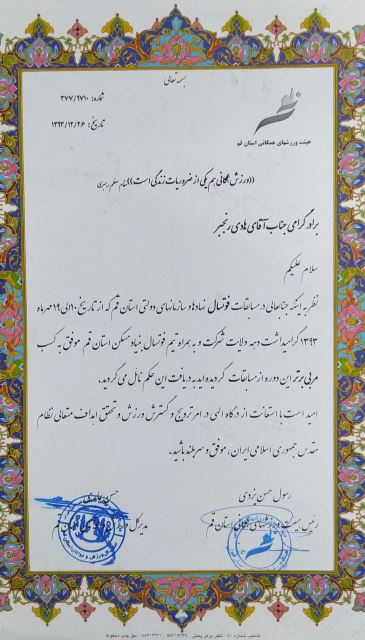 بسمه تعالی
شماره: ۳۷۷/۹۷۱۰
تاریخ: ۱۳۹۳/۱۲/۲۶
هیئت ورزشهای همگانی استان قم
((ورزش همگانی هم یکی از ضروریات زندگی است)) مقام معظم رهبری
برادر گرامی جناب آقای هادی رنجبر
سلام علیکم
نظر به اینکه جنابعالی در مسابقات فوتسال نهادها و سازمانهای دولتی استان قم که از تاریخ ۱۰ الی ۱۹ مهرماه
۱۳۹۳ گرامیداشت دهه ولایت شرکت و به همراه تیم فوتسال بنیاد مسکن استان قم موفق به کسب
مربی برتر این دوره از مسابقات گردیده‌اید به دریافت این حکم نائل می گردید.
امید است با استعانت از درگاه الهی در امر ترویج و گسترش ورزش و تحقق اهداف متعالی نظام
مقدس جمهوری اسلامی ایران، موفق و سربلند باشید.
رسول حسن یزدی
رئیس هیئت ورزشهای همگانی استان قم
مدیرکل استان قم